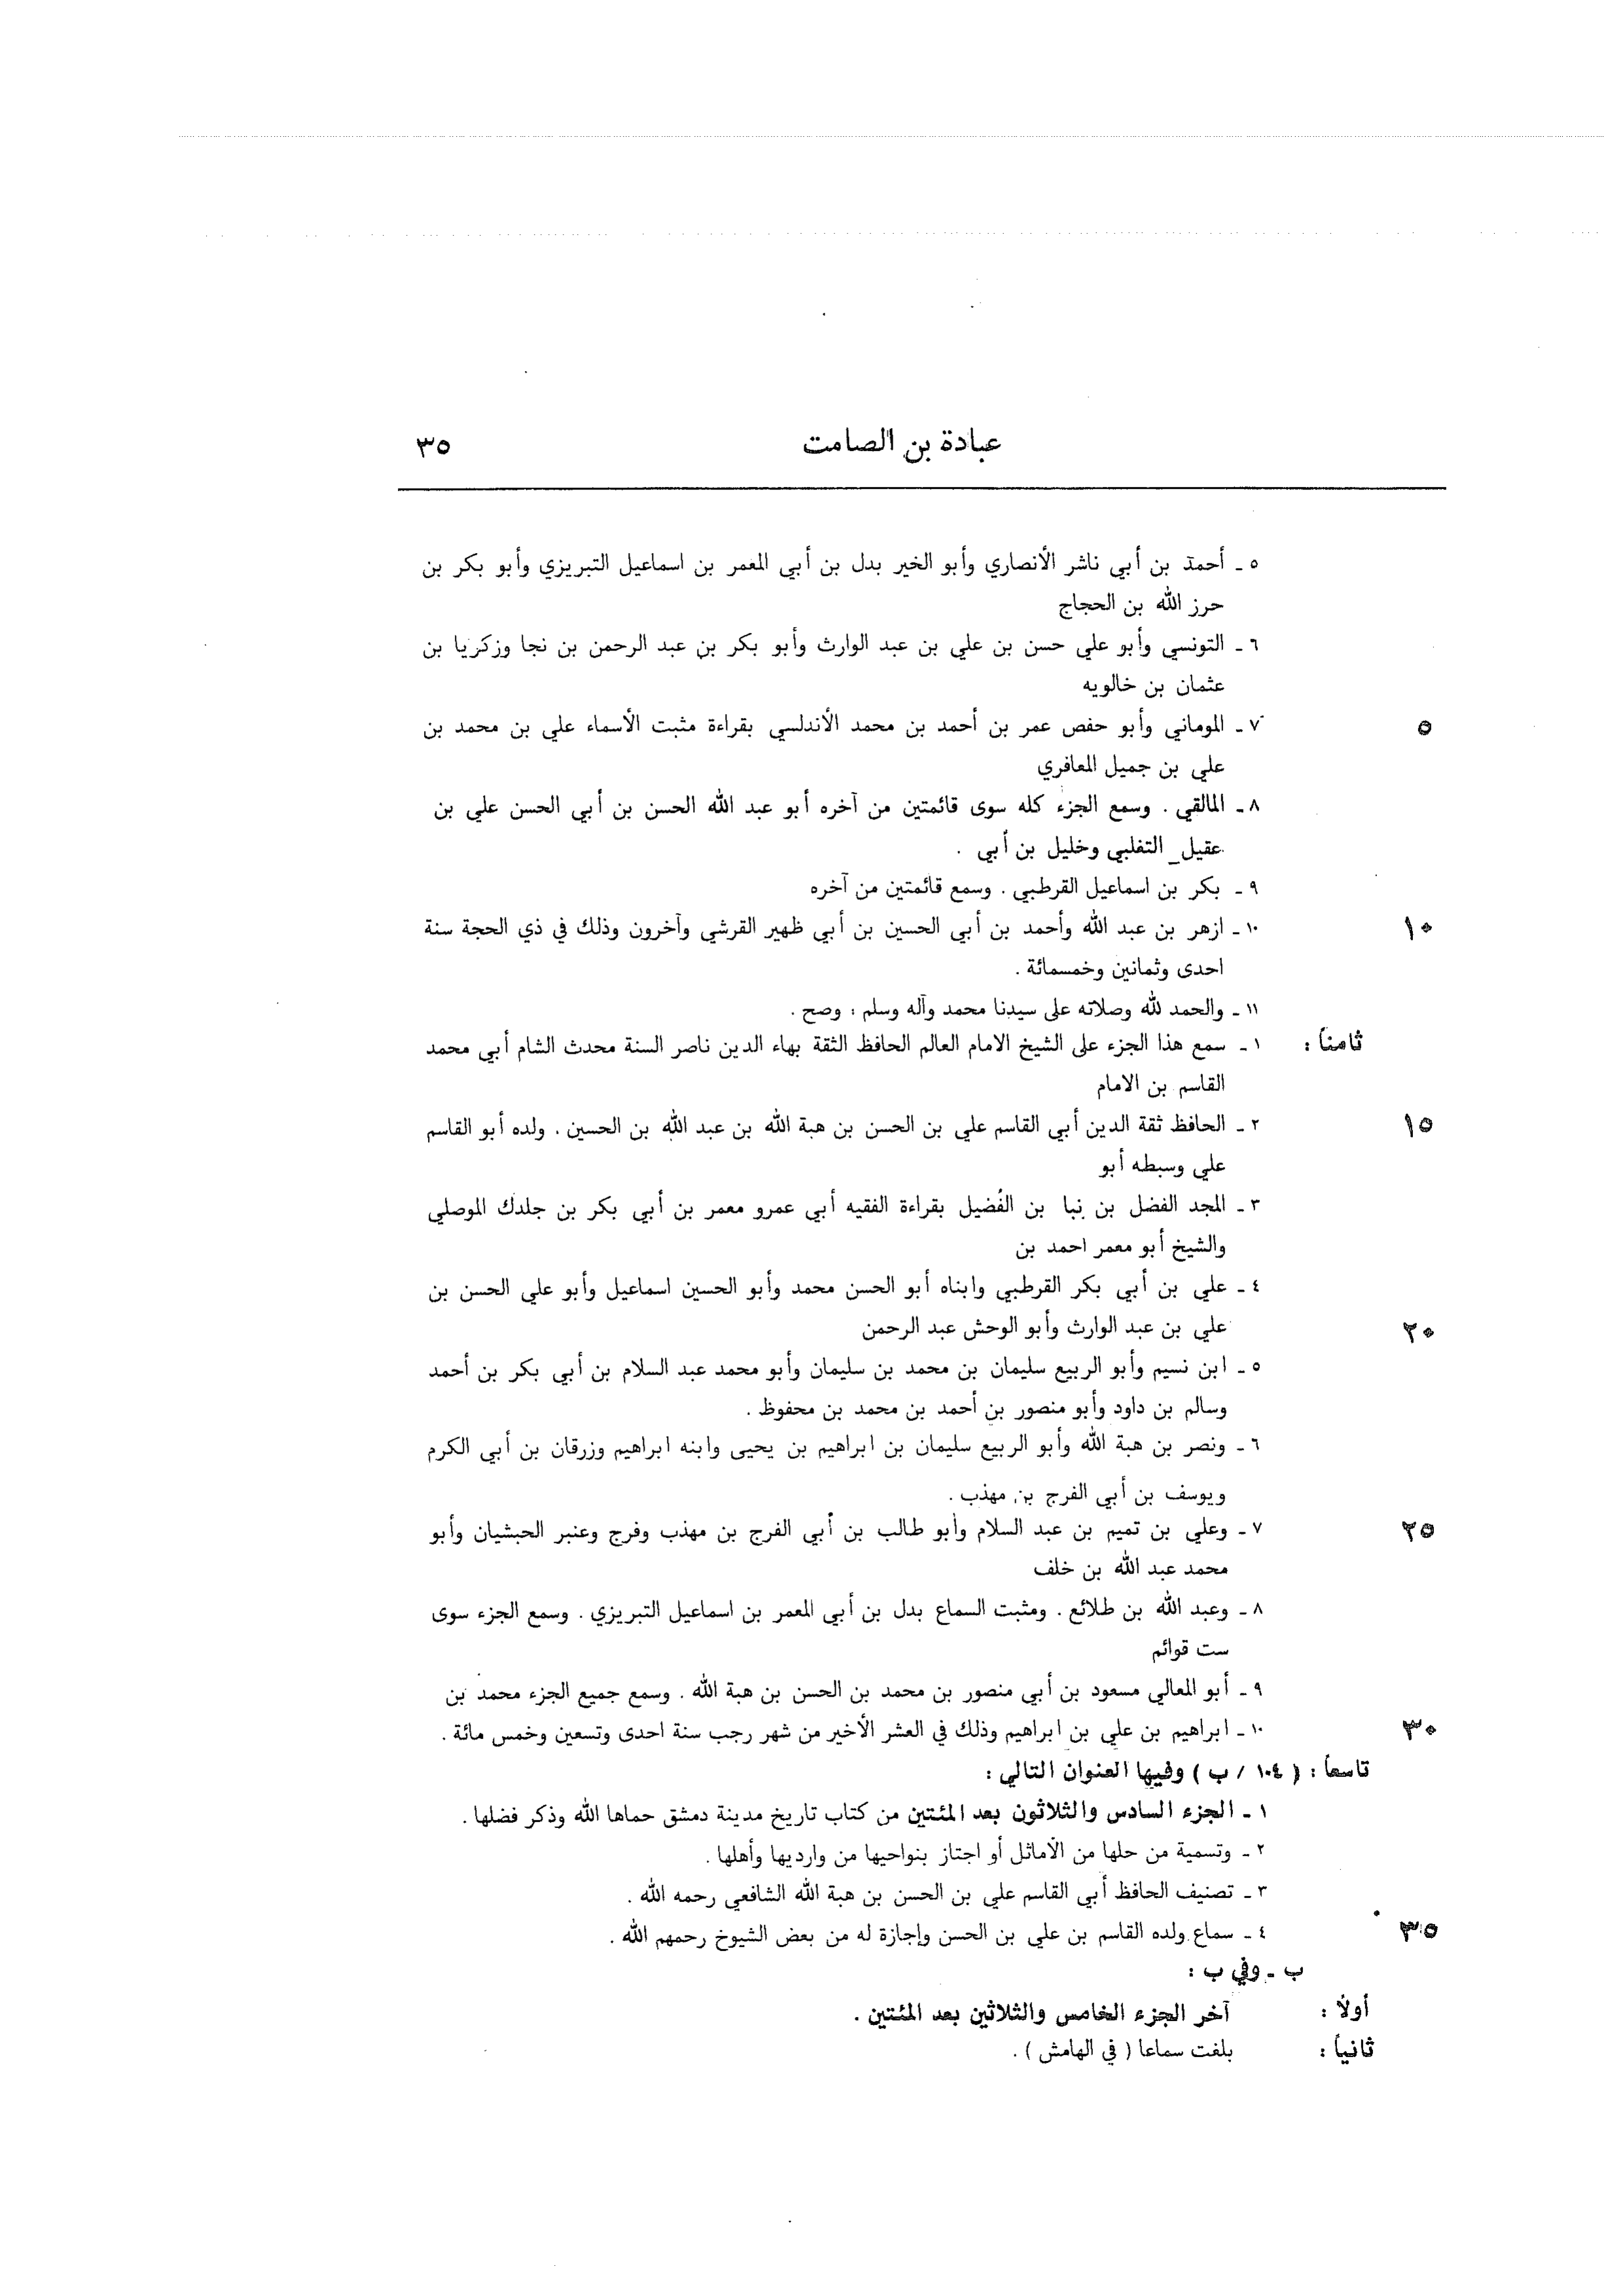 عبادة بن الصامت ٣٥
٥ ـ أحمد بن أبي ناشر الأنصاري وأبو الخير بدل بن أبي المعمر بن اسماعيل التبريزي وأبو بكر بن
حرز الله بن الحجاج
٦ ـ التونسي وأبو علي حسن بن علي بن عبد الوارث وأبو بكر بن عبد الرحمن بن نجا وزكريا بن
عثمان بن خالويه
٥ ٧ ـ الموماني وأبو حفص عمر بن أحمد بن محمد الأندلسي بقراءة مثبت الأسماء علي بن محمد بن
علي بن جميل المعافري
٨ ـ المالقي . وسمع الجزء كله سوى قائمتين من آخره أبو عبد الله الحسن بن أبي الحسن علي بن
عقيل التغلبي وخليل بن أبي .
٩ ـ بكر بن اسماعيل القرطبي . وسمع قائمتين من آخره
١٠ ١٠ ـ ازهر بن عبد الله وأحمد بن أبي الحسين بن أبي ظهير القرشي وآخرون وذلك في ذي الحجة سنة
احدى وثمانين وخمسمائة .
١١ ـ والحمد لله وصلاته على سيدنا محمد وآله وسلم ؛ وصح .
ثامناً : ١ ـ سمع هذا الجزء على الشيخ الامام العالم الحافظ الثقة بهاء الدين ناصر السنة محدث الشام أبي محمد
القاسم بن الامام
١٥ ٢ ـ الحافظ ثقة الدين أبي القاسم علي بن الحسن بن هبة الله بن عبد الله بن الحسين . ولده أبو القاسم
علي وسبطه أبو
٣ ـ المجد الفضل بن نبا بن الفُضيل بقراءة الفقيه أبي عمرو معمر بن أبي بكر بن جلدك الموصلي
والشيخ أبو معمر احمد بن
٤ ـ علي بن أبي بكر القرطبي وابناه أبو الحسن محمد وأبو الحسين اسماعيل وأبو علي الحسن بن
٢٠ علي بن عبد الوارث وأبو الوحش عبد الرحمن
٥ ـ ابن نسيم وأبو الربيع سليمان بن محمد بن سليمان وأبو محمد عبد السلام بن أبي بكر بن أحمد
وسالم بن داود وأبو منصور بن أحمد بن محمد بن محفوظ .
٦ ـ ونصر بن هبة الله وأبو الربيع سليمان بن ابراهيم بن يحيى وابنه ابراهيم وزرقان بن أبي الكرم
ويوسف بن أبي الفرج بن مهذب .
٢٥ ٧ ـ وعلي بن تميم بن عبد السلام وأبو طالب بن أبي الفرج بن مهذب وفرج وعنبر الحبشيان وأبو
محمد عبد الله بن خلف
٨ ـ وعبد الله بن طلائع . ومثبت السماع بدل بن أبي المعمر بن اسماعيل التبريزي . وسمع الجزء سوى
ست قوائم
٩ ـ أبو المعالي مسعود بن أبي منصور بن محمد بن الحسن بن هبة الله . وسمع جميع الجزء محمد بن
٣٠ ١٠ ـ ابراهيم بن علي بن ابراهيم وذلك في العشر الأخير من شهر رجب سنة احدى وتسعين وخمس مائة .
تاسعاً : ( ١٠٤ / ب ) وفيها العنوان التالي :
١ ـ الجزء السادس والثلاثون بعد المئتين من كتاب تاريخ مدينة دمشق حماها الله وذكر فضلها .
٢ ـ وتسمية من حلها من الأماثل أو اجتاز بنواحيها من وارديها وأهلها .
٣ ـ تصنيف الحافظ أبي القاسم علي بن الحسن بن هبة الله الشافعي رحمه الله .
٣٥ ٤ ـ سماع ولده القاسم بن علي بن الحسن وإجازة له من بعض الشيوخ رحمهم الله .
ب ـ وفي ب :
أولاً : آخر الجزء الخامس والثلاثين بعد المئتين .
ثانياً : بلغت سماعا ( في الهامش ) .